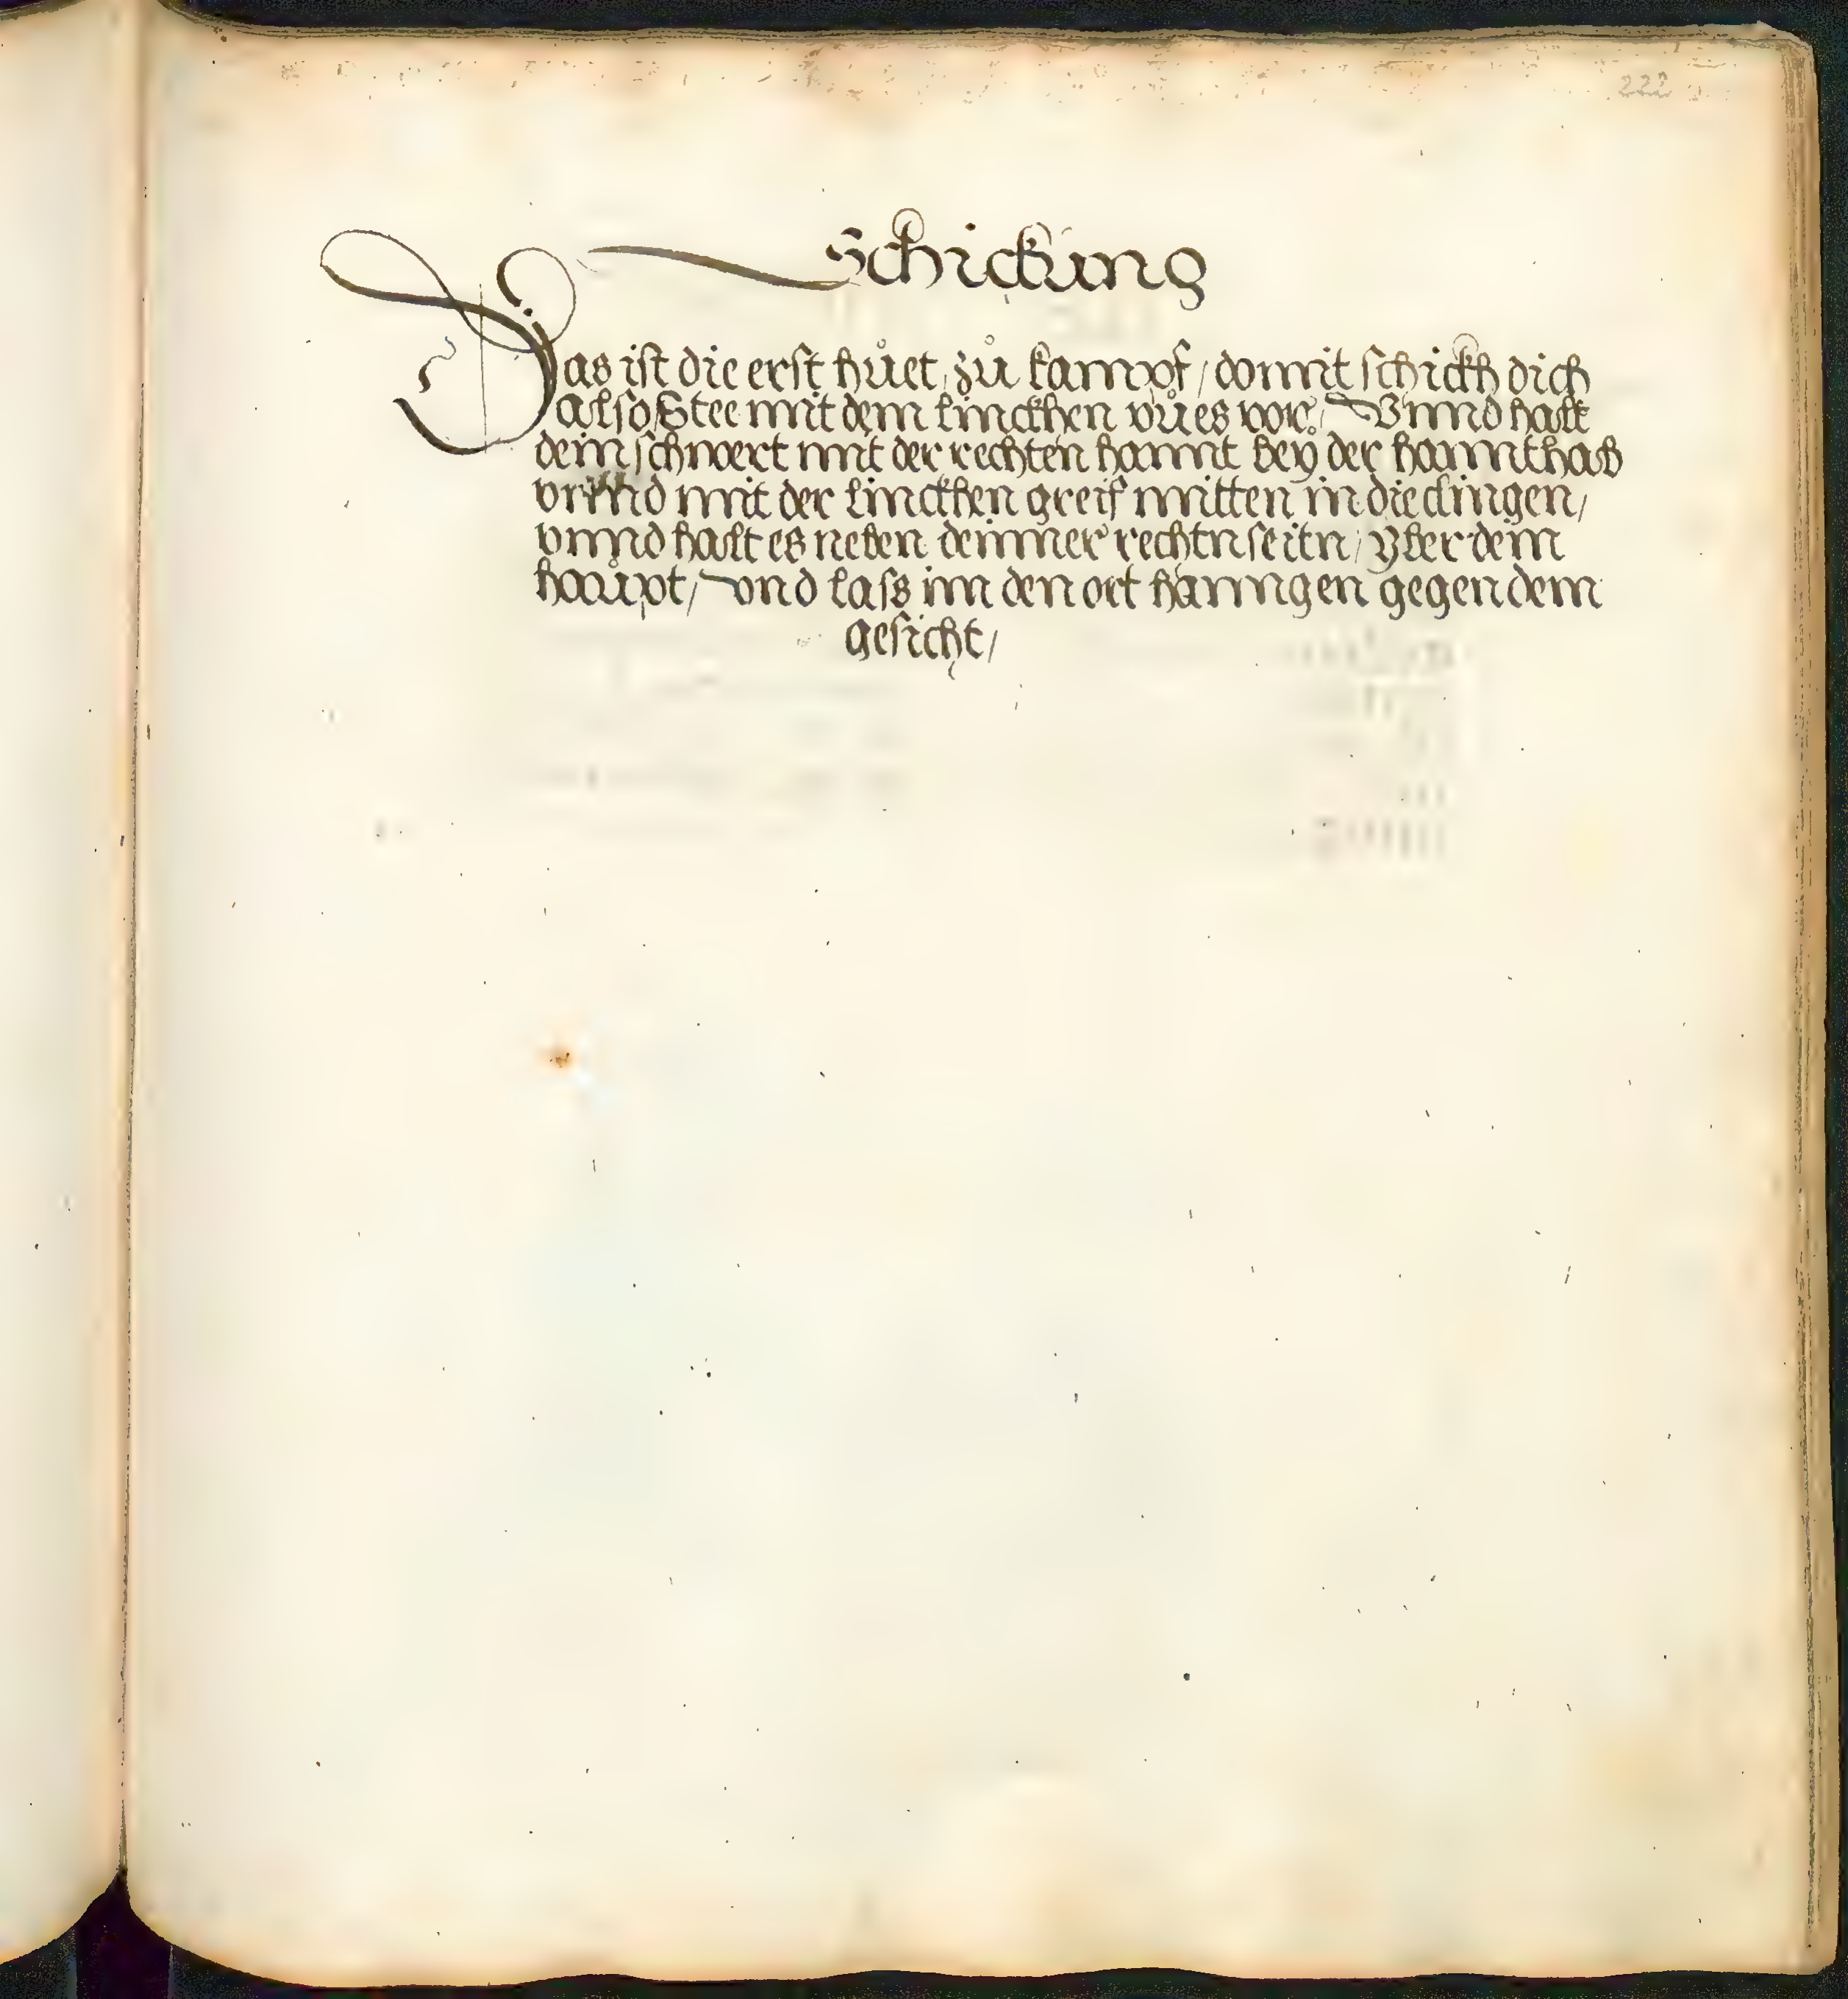 222
Schickung
Das ist die erst hůet, zů kampf / domit schickh dich
also / Stee mit dem linckhen vůes vor / Vnnd halt
dein schwert mit der rechten hannt bey der hannthab
vnnd mit der linckhen greif mitten in die clingen /
vnnd halt es neben deinner rechtn seitn / yber dein
haůpt / vnd lass im den ort hanngen gegen dem
gesicht /